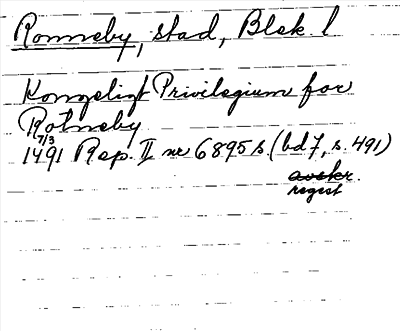 Ronneby, stad, Blek. l
Kongeligt Privilegium for
Rotneby
7/3
1491 Rep. II nr 6895 s. (bd 7, s. 491)
avskr.
regest